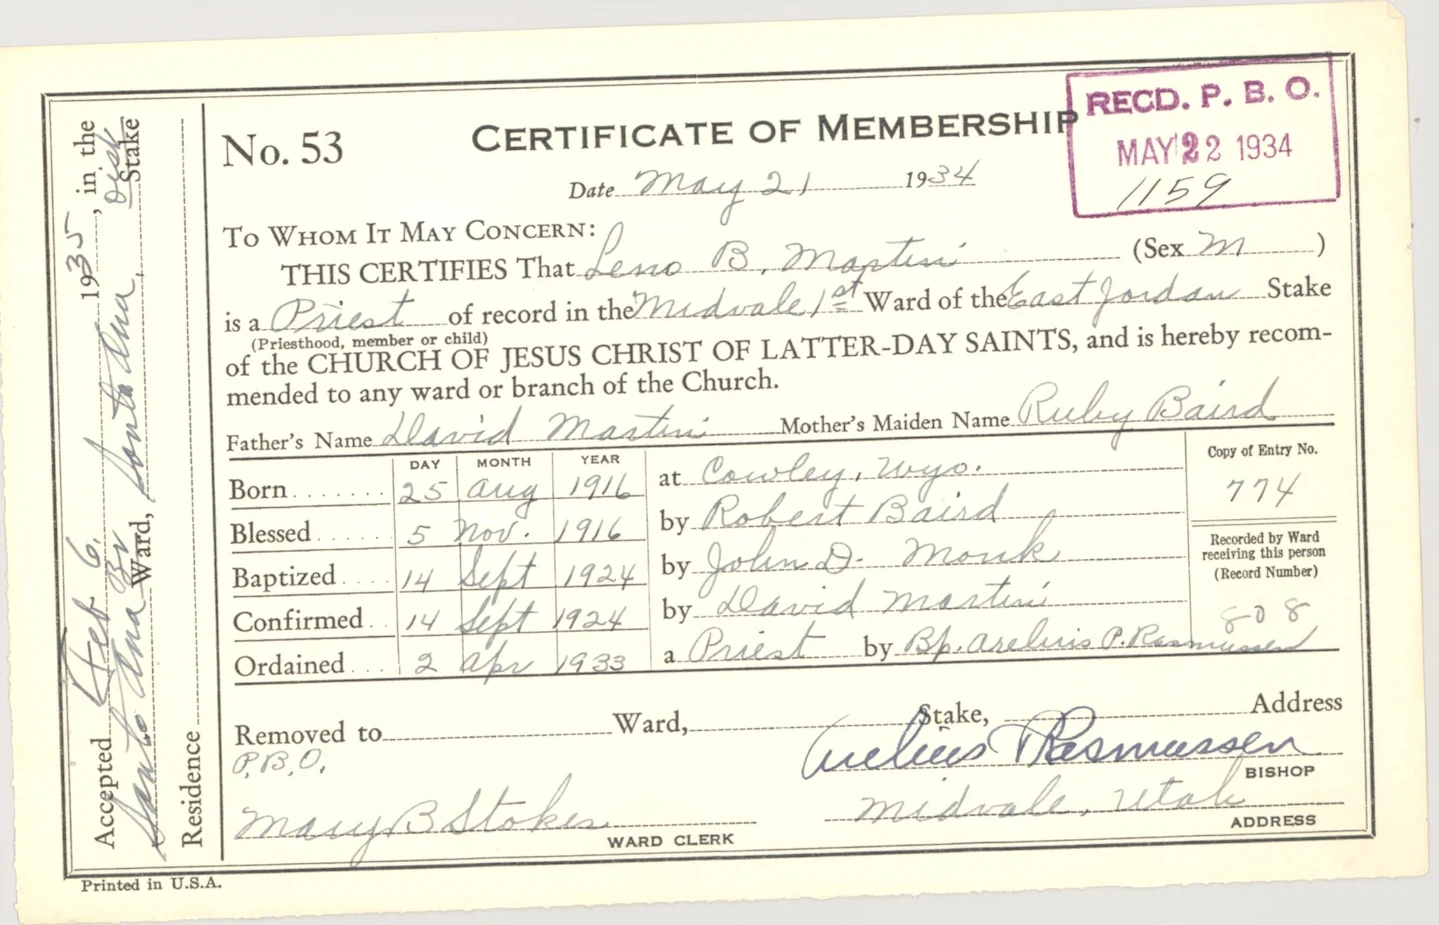 No. 53
CERTIFICATE OF MEMBERSHIP
RECD. P. B. O.
MAY 22 1934
1159
Date May 21 1934
TO WHOM IT MAY CONCERN:
THIS CERTIFIES That Leno B. Martin (Sex M )
is a Priest of record in the Midvale 1st Ward of the East Jordan Stake
(Priesthood, member or child)
of the CHURCH OF JESUS CHRIST OF LATTER-DAY SAINTS, and is hereby recom-
mended to any ward or branch of the Church.
Father's Name David Martin Mother's Maiden Name Ruby Baird
DAY MONTH YEAR
Born 25 Aug 1916 at Cowley, Wyo.
Blessed 5 Nov. 1916 by Robert Baird
Baptized 14 Sept 1924 by John D. Monk
Confirmed 14 Sept 1924 by David Martin
Ordained 2 Apr 1933 a Priest by Bp. Arelius P. Rasmussen
Copy of Entry No.
774
Recorded by Ward
receiving this person
(Record Number)
808
Removed to Ward, Stake, Address
P.B.O.
Aurelius P Rasmussen
BISHOP
Mary B Stokes
WARD CLERK
Midvale, Utah
ADDRESS
Accepted Feb 6, 1935, in the
Santa Ana Br Ward, Santa Ana, Dist Stake
Residence
Printed in U.S.A.